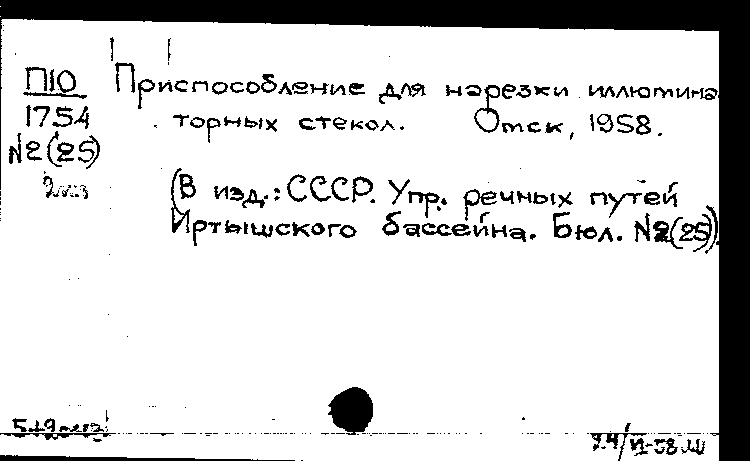 П10
1754
№2(25)
2экз
Приспособление для нарезки иллюмина
торных стекол. Омск, 1958.
(В изд.: СССР. Упр. речных путей
Иртышского бассейна. Бюл. №2(25)).